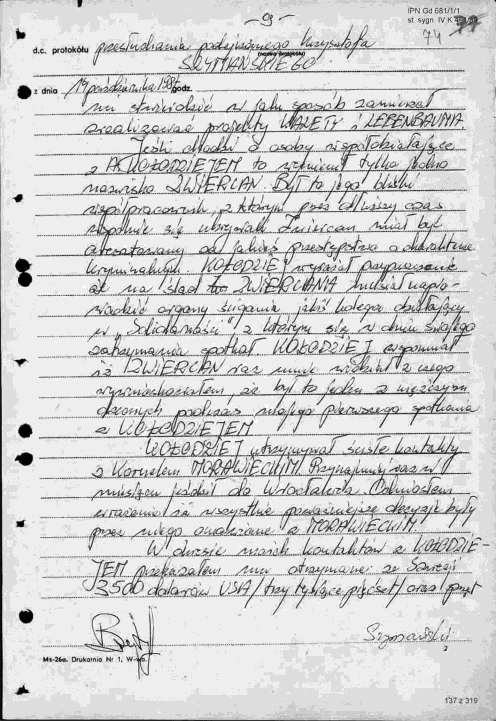 IPN Gd 681/1/1
st. sygn. IV K
- 9 -
74
d.c. protokółu przesłuchania podejrzanego Krzysztofa
SZYMAŃSKIEGO
z dnia 19 października godz.
mi stwierdzić w jaki sposób zamierzał
zrealizować projekty WALETY i LEPENBAUMA.
Jeśli chodzi o osoby współdziałające
z A. KOŁODZIEJEM to wymienił tylko jedno
nazwisko ZWIERCAN. Był to jego bliski
współpracownik, z którym przez dłuższy czas
wspólnie się ukrywali. Zwiercan miał być
aresztowany od jakieś przestępstwo o charakterze
kryminalnym. KOŁODZIEJ wyrażał przypuszczenie
że na ślad ZWIERCANA musiał napro-
wadzić organy ścigania jakiś kolega działający
w "Solidarności" z którym się w dniu swojego
zatrzymania spotkał. KOŁODZIEJ wspomniał
iż ZWIERCAN raz mnie widział z czego
wywnioskowałem, że był to jeden z mężczyzn
obecnych podczas mojego pierwszego spotkania
z KOŁODZIEJEM
KOŁODZIEJ utrzymywał ścisłe kontakty
z Kornelem MORAWIECKIM. Przynajmniej raz w
miesiącu jeździł do Wrocławia. Odniosłem
wrażenie iż wszystkie poważniejsze decyzje były
przez niego omawiane z MORAWIECKIM.
W okresie moich kontaktów z KOŁODZIE-
JEM przekazałem mu otrzymane ze Szwecji
3500 dolarów USA /trzy tysiące pięćset/ oraz sprzęt
Szymański
Ms-26a. Drukarnia Nr 1, W-wa.
2
137 z 319